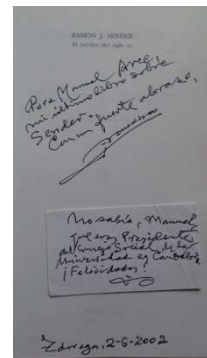 RAMÓN J. SENDER
El escritor del siglo XX
Para Manuel Arce
mi último libro sobre
Sender.
Con un fuerte abrazo,
No sabía, Manuel
que eres Presidente
del Consejo Social de la
Universidad de Cantabria
¡Felicidades!
2-6-2002